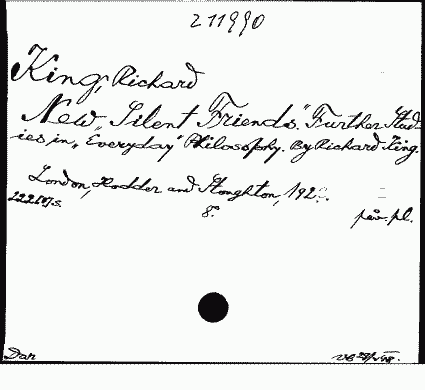 211990
King, Richard
New "Silent Friends." Further Stud-
ies in "Everyday" Philosophy. By Richard King.
London, Hodder and Stoughton, 192
222 107 s. 8º. påv. pl.
Dan